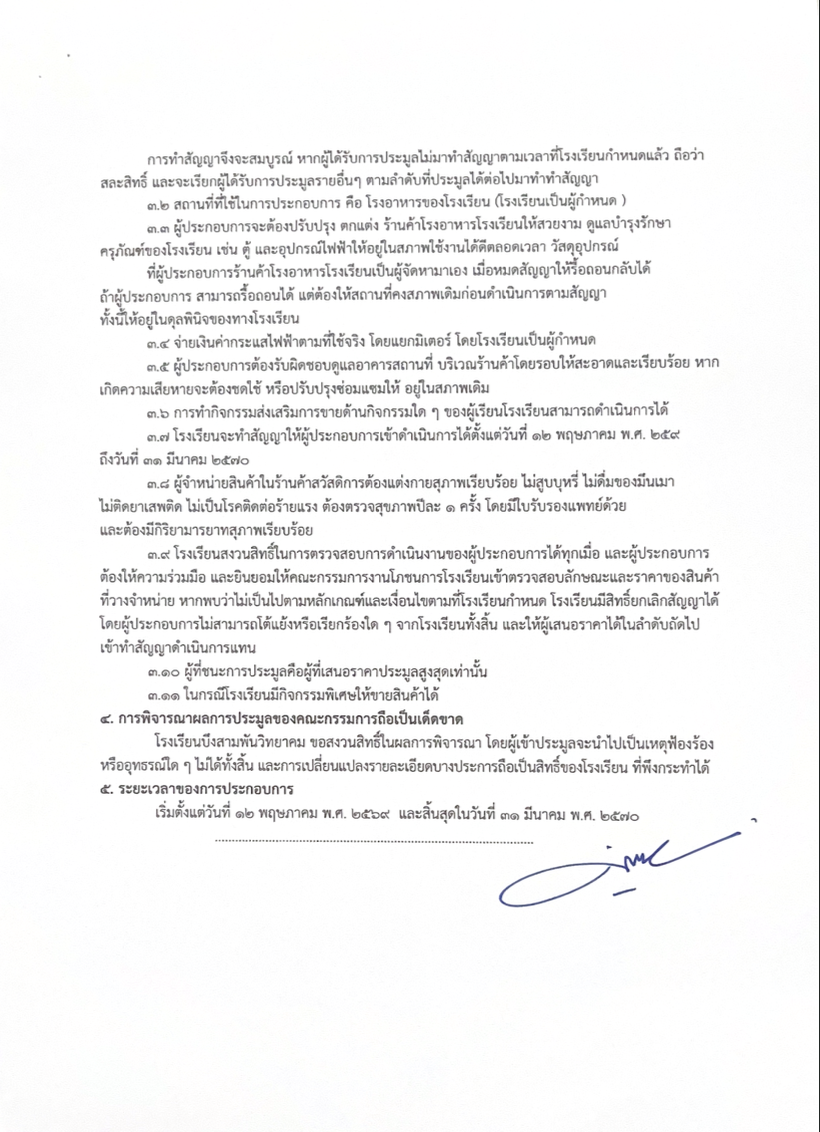 การทำสัญญาจึงจะสมบูรณ์ หากผู้ได้รับการประมูลไม่มาทำสัญญาตามเวลาที่โรงเรียนกำหนดแล้ว ถือว่า
สละสิทธิ์ และจะเรียกผู้ได้รับการประมูลรายอื่นๆ ตามลำดับที่ประมูลได้ต่อไปมาทำทำสัญญา
๓.๒ สถานที่ที่ใช้ในการประกอบการ คือ โรงอาหารของโรงเรียน (โรงเรียนเป็นผู้กำหนด )
๓.๓ ผู้ประกอบการจะต้องปรับปรุง ตกแต่ง ร้านค้าโรงอาหารโรงเรียนให้สวยงาม ดูแลบำรุงรักษา
ครุภัณฑ์ของโรงเรียน เช่น ตู้ และอุปกรณ์ไฟฟ้าให้อยู่ในสภาพใช้งานได้ดีตลอดเวลา วัสดุอุปกรณ์
ที่ผู้ประกอบการร้านค้าโรงอาหารโรงเรียนเป็นผู้จัดหามาเอง เมื่อหมดสัญญาให้รื้อถอนกลับได้
ถ้าผู้ประกอบการ สามารถรื้อถอนได้ แต่ต้องให้สถานที่คงสภาพเดิมก่อนดำเนินการตามสัญญา
ทั้งนี้ให้อยู่ในดุลพินิจของทางโรงเรียน
๓.๔ จ่ายเงินค่ากระแสไฟฟ้าตามที่ใช้จริง โดยแยกมิเตอร์ โดยโรงเรียนเป็นผู้กำหนด
๓.๕ ผู้ประกอบการต้องรับผิดชอบดูแลอาคารสถานที่ บริเวณร้านค้าโดยรอบให้สะอาดและเรียบร้อย หาก
เกิดความเสียหายจะต้องชดใช้ หรือปรับปรุงซ่อมแซมให้ อยู่ในสภาพเดิม
๓.๖ การทำกิจกรรมส่งเสริมการขายด้านกิจกรรมใด ๆ ของผู้เรียนโรงเรียนสามารถดำเนินการได้
๓.๗ โรงเรียนจะทำสัญญาให้ผู้ประกอบการเข้าดำเนินการได้ตั้งแต่วันที่ ๑๒ พฤษภาคม พ.ศ. ๒๕๙
ถึงวันที่ ๓๑ มีนาคม ๒๕๗๐
๓.๘ ผู้จำหน่ายสินค้าในร้านค้าสวัสดิการต้องแต่งกายสุภาพเรียบร้อย ไม่สูบบุหรี่ ไม่ดื่มของมึนเมา
ไม่ติดยาเสพติด ไม่เป็นโรคติดต่อร้ายแรง ต้องตรวจสุขภาพปีละ ๑ ครั้ง โดยมีใบรับรองแพทย์ด้วย
และต้องมีกิริยามารยาทสุภาพเรียบร้อย
๓.๙ โรงเรียนสงวนสิทธิ์ในการตรวจสอบการดำเนินงานของผู้ประกอบการได้ทุกเมื่อ และผู้ประกอบการ
ต้องให้ความร่วมมือ และยินยอมให้คณะกรรมการงานโภชนการโรงเรียนเข้าตรวจสอบลักษณะและราคาของสินค้า
ที่วางจำหน่าย หากพบว่าไม่เป็นไปตามหลักเกณฑ์และเงื่อนไขตามที่โรงเรียนกำหนด โรงเรียนมีสิทธิ์ยกเลิกสัญญาได้
โดยผู้ประกอบการไม่สามารถโต้แย้งหรือเรียกร้องใด ๆ จากโรงเรียนทั้งสิ้น และให้ผู้เสนอราคาได้ในลำดับถัดไป
เข้าทำสัญญาดำเนินการแทน
๓.๑๐ ผู้ที่ชนะการประมูลคือผู้ที่เสนอราคาประมูลสูงสุดเท่านั้น
๓.๑๑ ในกรณีโรงเรียนมีกิจกรรมพิเศษให้ขายสินค้าได้
๔. การพิจารณาผลการประมูลของคณะกรรมการถือเป็นเด็ดขาด
โรงเรียนบึงสามพันวิทยาคม ขอสงวนสิทธิ์ในผลการพิจารณา โดยผู้เข้าประมูลจะนำไปเป็นเหตุฟ้องร้อง
หรืออุทธรณ์ใด ๆ ไม่ได้ทั้งสิ้น และการเปลี่ยนแปลงรายละเอียดบางประการถือเป็นสิทธิ์ของโรงเรียน ที่พึงกระทำได้
๕. ระยะเวลาของการประกอบการ
เริ่มตั้งแต่วันที่ ๑๒ พฤษภาคม พ.ศ. ๒๕๖๙ และสิ้นสุดในวันที่ ๓๑ มีนาคม พ.ศ. ๒๕๗๐